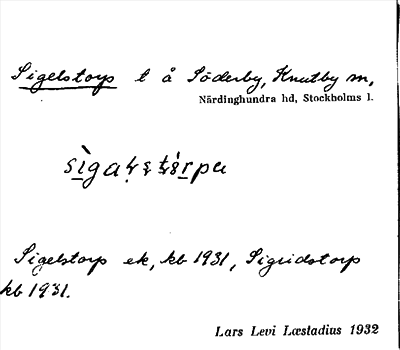 Sigelstorp t å Söderby, Knutby sn,
Närdinghundra hd, Stockholms l.
Sigelstorp ek, kb 1931, Sigridstorp
kb 1931.
Lars Levi Læstadius 1932